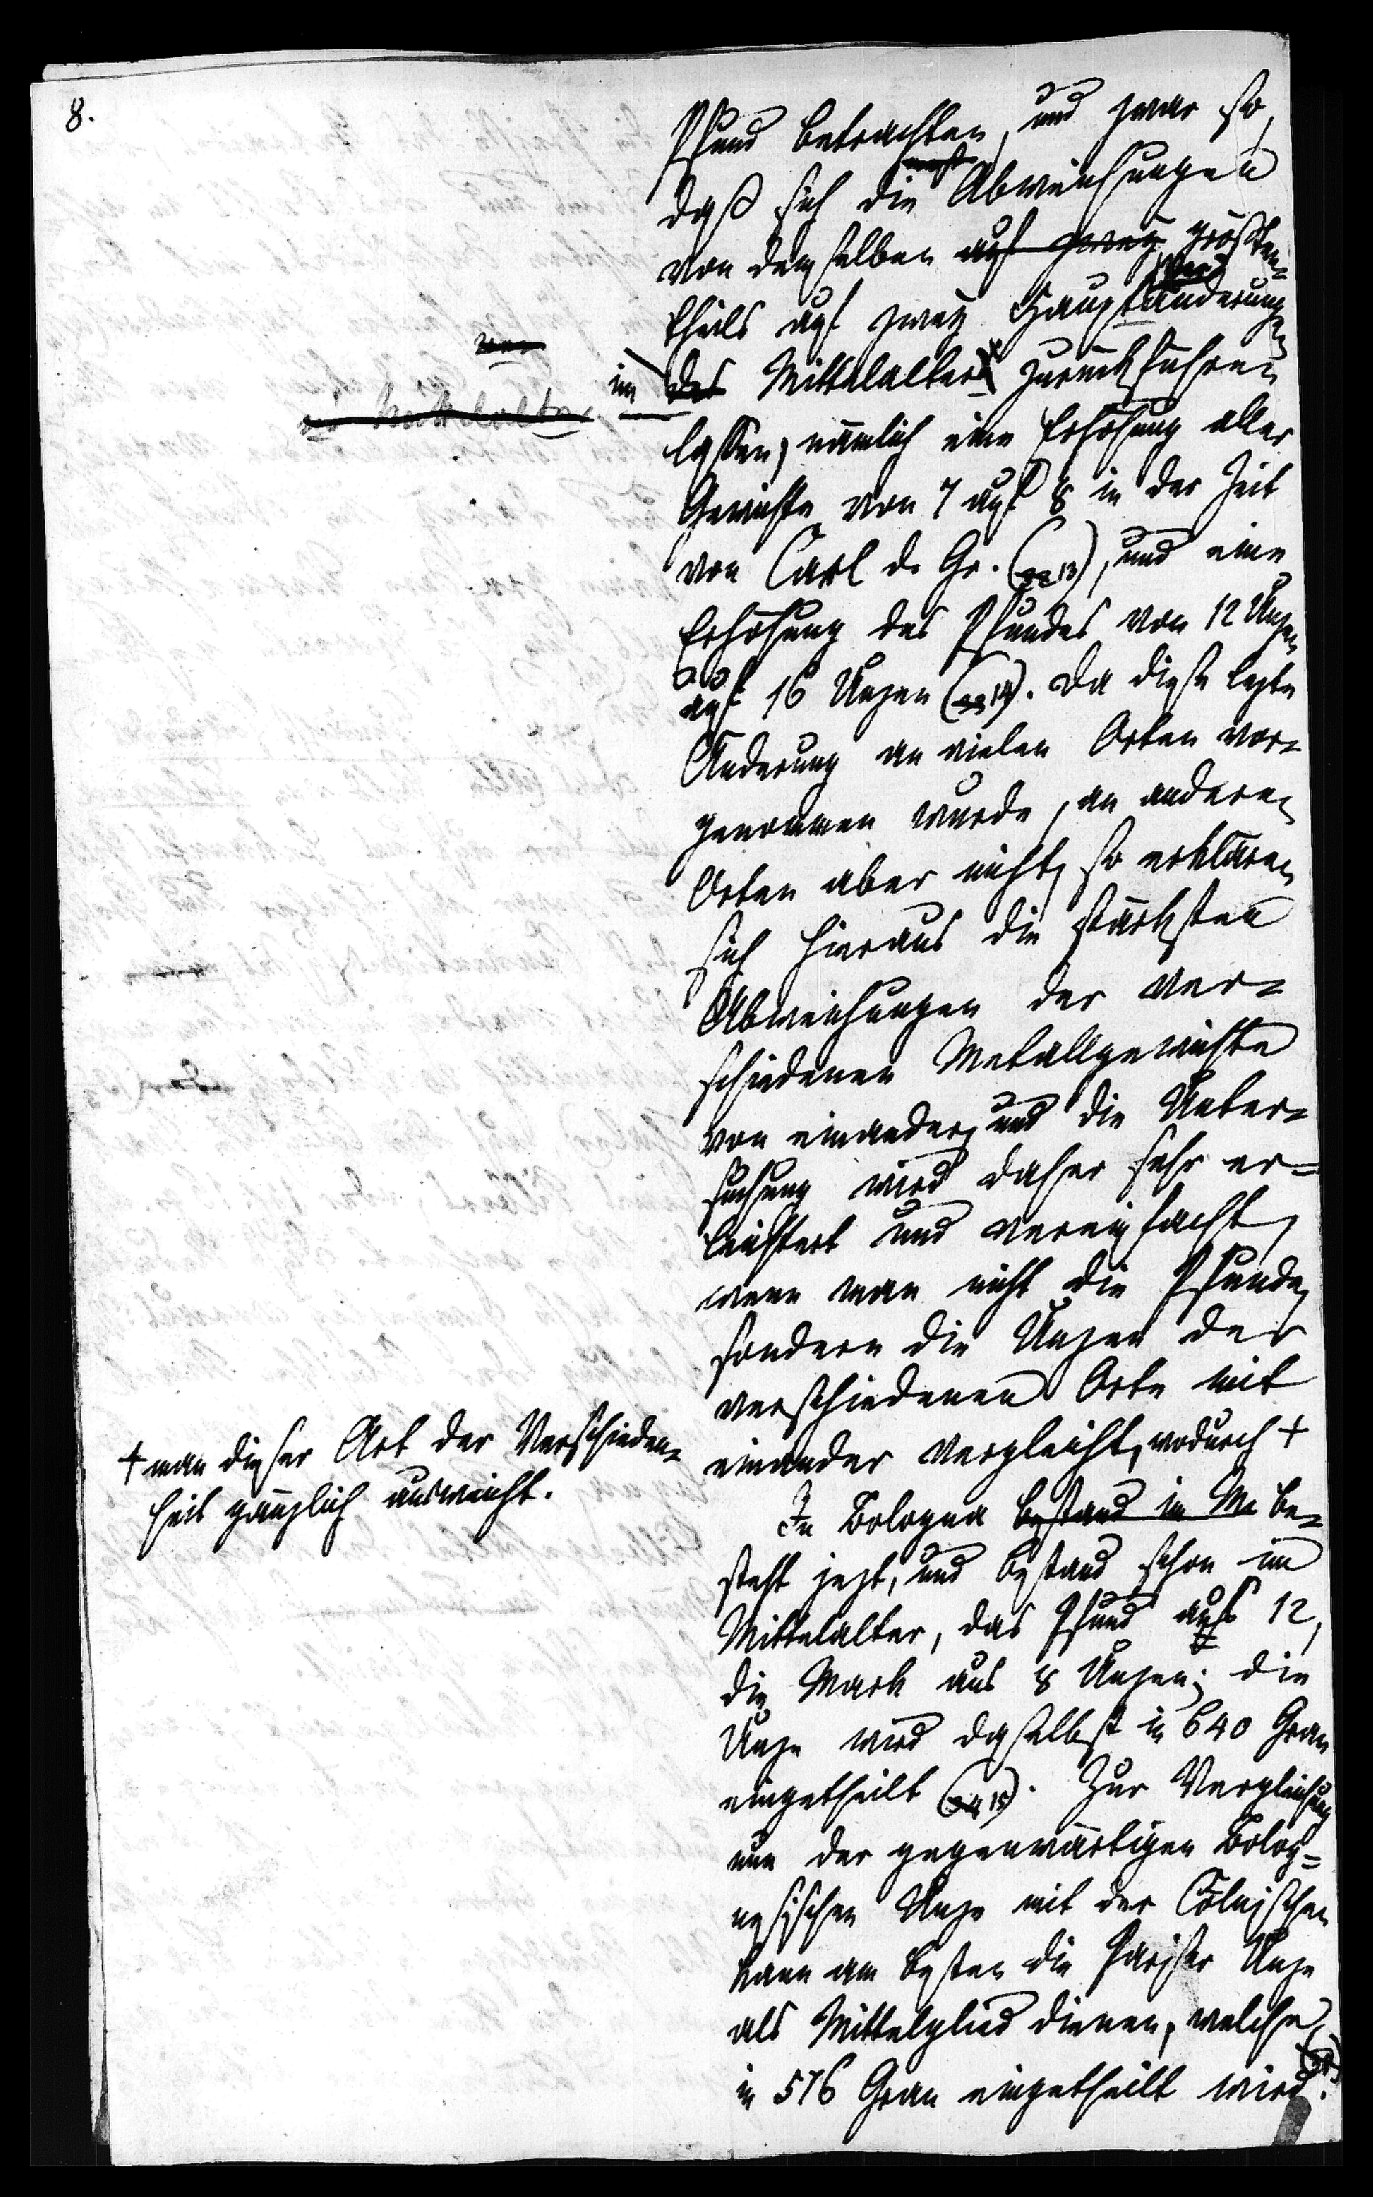 8.
Pfund betrachten, und zwar so,
daß sich die Abweichungen
von demselben auf zwey größten-
theils auf zwey Hauptänderungen
im des Mittelalters zurückführen
lassen, nämlich eine Erhöhung aller
Gewichte von 7 auf 8 in der Zeit
von Carl d. Gr. (13), und eine
Erhöhung des Pfundes von 12 Unzen
auf 16 Unzen (14). Da diese lezte
Änderung an vielen Orten vor-
genommen wurde, an anderen
Orten aber nicht, so erklären
sich hieraus die stärksten
Abweichungen der ver-
schiedenen Metallgewichte
von einander, und die Unter-
suchung wird daher sehr er-
leichtert und vereinfacht,
wenn man nicht die Pfunde,
sondern die Unzen der
verschiedenen Orte mit
einander vergleicht, wodurch +
+ man dieser Art der Verschieden-
heit gänzlich ausweicht.
In Bologna bestand im M be-
steht jezt, und bestand schon im
Mittelalter, das Pfund aus 12,
die Mark aus 8 Unzen; die
Unze wird daselbst in 640 Gran
eingetheilt (15). Zur Vergleichung
nun der gegenwärtigen Bolog-
nesischen Unze mit der Cölnischen
kann am besten die Pariser Unze
als Mittelglied dienen, welche
in 576 Gran eingetheilt wird.